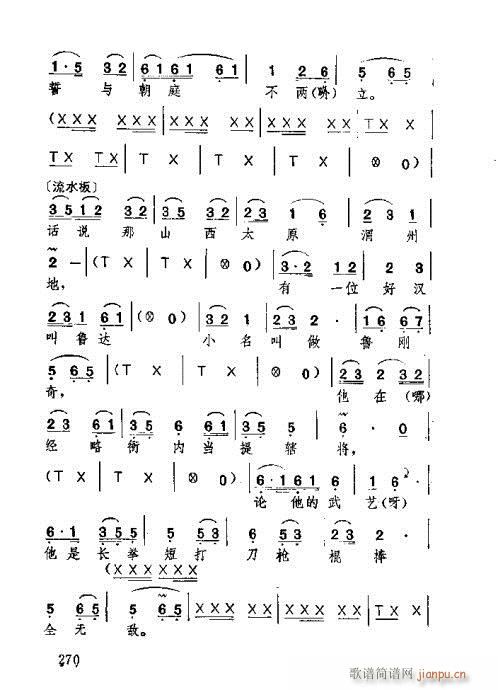 1·5 3 2 | 6 1 6 1 6 1 | 1 2 6 | 5 6 5 |
誓 与 朝庭 不 两(哟) 立。
(X X X | X X X X X X | X X X X X X | T X X X |
T X T X | T X | T X | T X | ⊗ 0)
〔流水板〕
3 5 1 2 3 2 | 3 5 3 2 | 2 3 1 6 | 2 3 1 |
话说那 山西太原 渭州
2 – | (T X | T X | ⊗ 0) | 3·2 1 2 | 2 3 |
地, 有一位好汉
2 3 1 6 1 | (⊗ 0) | 3 2 1 | 2 3 2 · | 1 6 6 7 |
叫鲁达 小名叫做 鲁刚
5 6 5 | (T X | T X | ⊗ 0) | 3 2 3 2 3 2 |
奇, 他在(哪)
2 3 6 1 | 2 3 5 6 | 3 2 3 5 5 | 6 · 0 |
经略衙内当提辖将,
(T X | T X | T X | ⊗ 0) | 6·1 6 1 | 1 6 |
论他的武艺(呀)
6·1 3 5 5 | 5 5 3 | 6 5 3 | 5 2 3 |
他是长拳短打刀枪棍棒
(X X X X X X
5 6 5 | 5 6 5 | X X X X X X | X X X X X | X X X |
全无敌。
270
歌谱简谱网
jianpu.cn